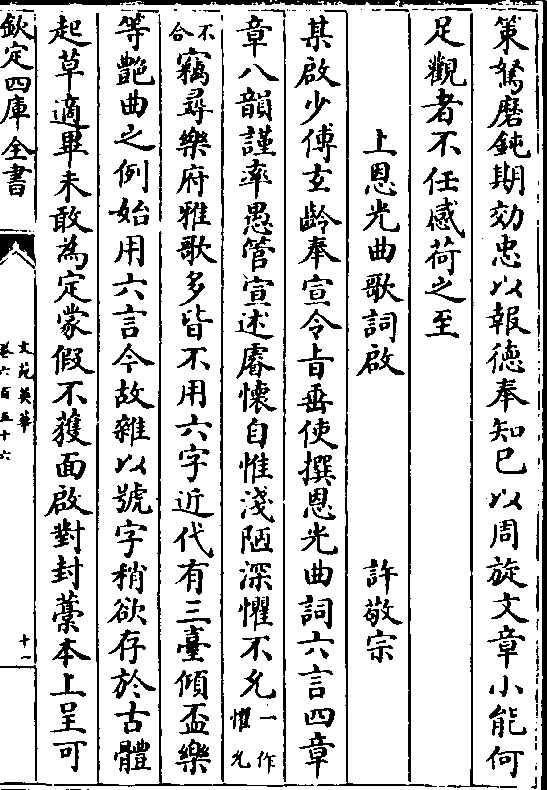 策駑磨鈍期効忠以報徳奉知己以周旋文章小能何
足觀者不任感荷之至
上恩光曲歌詞啟　許敬宗
某啟少傅玄齡奉宣令旨垂使撰恩光曲詞六言四章
章八韻謹率愚管宣述睿懷自惟淺陋深懼不允一作懼允
不合竊尋樂府雅歌多皆不用六字近代有三臺傾盃樂
等艷曲之例始用六言今故雜以號字稍欲存於古體
起草適畢未敢為定蒙假不獲面啟對封藁本上呈可
欽定四庫全書
文苑英華
卷六百五十六
十一